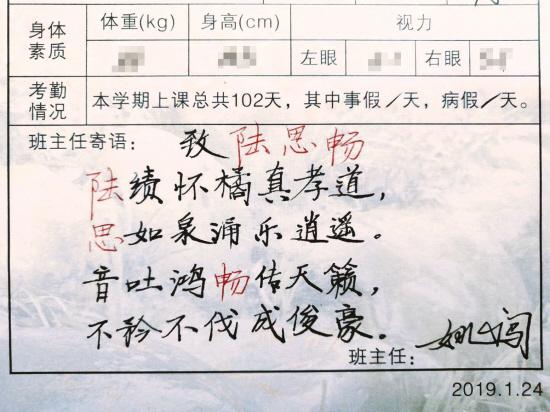 身体素质 体重(kg) 身高(cm) 视力
左眼 右眼
考勤情况 本学期上课总共102天，其中事假/天，病假/天。
班主任寄语： 致 陆思畅
陆绩怀橘真孝道，
思如泉涌乐逍遥。
音吐鸿畅佶天籁，
不矜不伐成俊豪。
班主任： 姚闯
2019.1.24